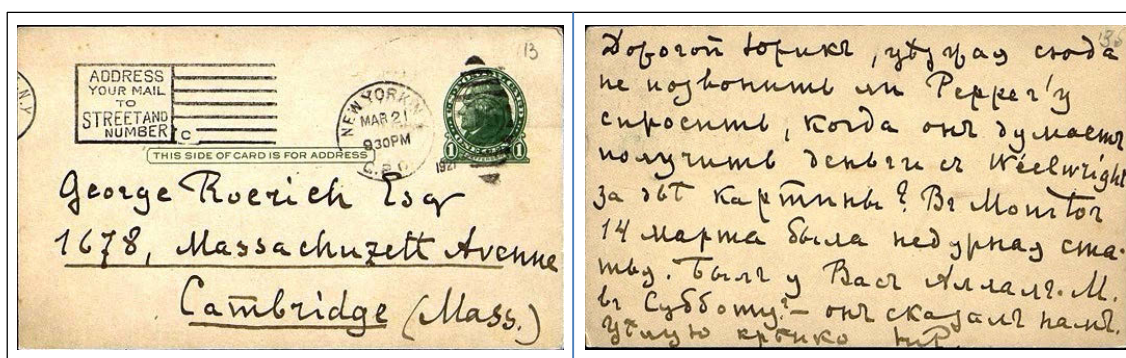 13
N.Y
ADDRESS
YOUR MAIL
TO
STREET AND
NUMBER
C
NEW YORK, N.Y.
MAR 21
930 PM
G.P.O.
1921
1 1
THIS SIDE OF CARD IS FOR ADDRESS
George Roerich Esq
1678, Massachuzett Avenue
Cambridge (Mass.)
Дорогой Юрикъ, уѣзжая сюда
не позвонить ли Pepper'у
спросить, когда онъ думаетъ
получить деньги съ Weelwright
за двѣ картины? Въ Monitor
14 марта была недурная ста-
тья. Былъ у Васъ М.
въ Субботу? – онъ сказалъ намъ.
Цѣлую крѣпко НР.